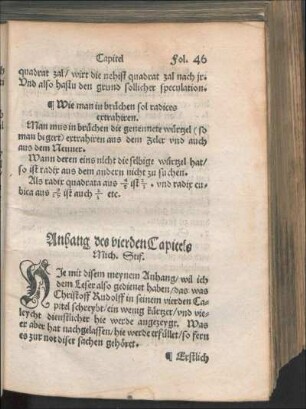 Capitel Fol. 46
quadrat zal / wirt die nehist quadrat zal nach jr.
Vnd also hastu den grund sollicher speculation.
¶ Wie man in brüchen sol radices
extrahiren.
Man mus in brüchen die genennete würtzel / so
man begert / extrahiren aus dem Zeler vnd auch
aus dem Nenner.
Wann deren eins nicht die selbige würtzel hat /
so ist radix aus dem andern nicht zu suchen.
Als radix quadrata aus ist vnd radix cu-
bica aus ist auch etc.
Anhang des vierden Capitels
Mich. Stif.
HIe mit disem meynem Anhang / wil ich
dem Leser also gedienet haben / das was
Christoff Rudolff in seinem vierden Ca-
pitel schreybt / ein wenig kürtzer / vnd vie-
leycht dienstlicher hie werde angezeygt. Was
er aber hat nachgelassen / hie werde erfüllet / so fern
es zur not diser sachen gehöret.
¶ Erstlich